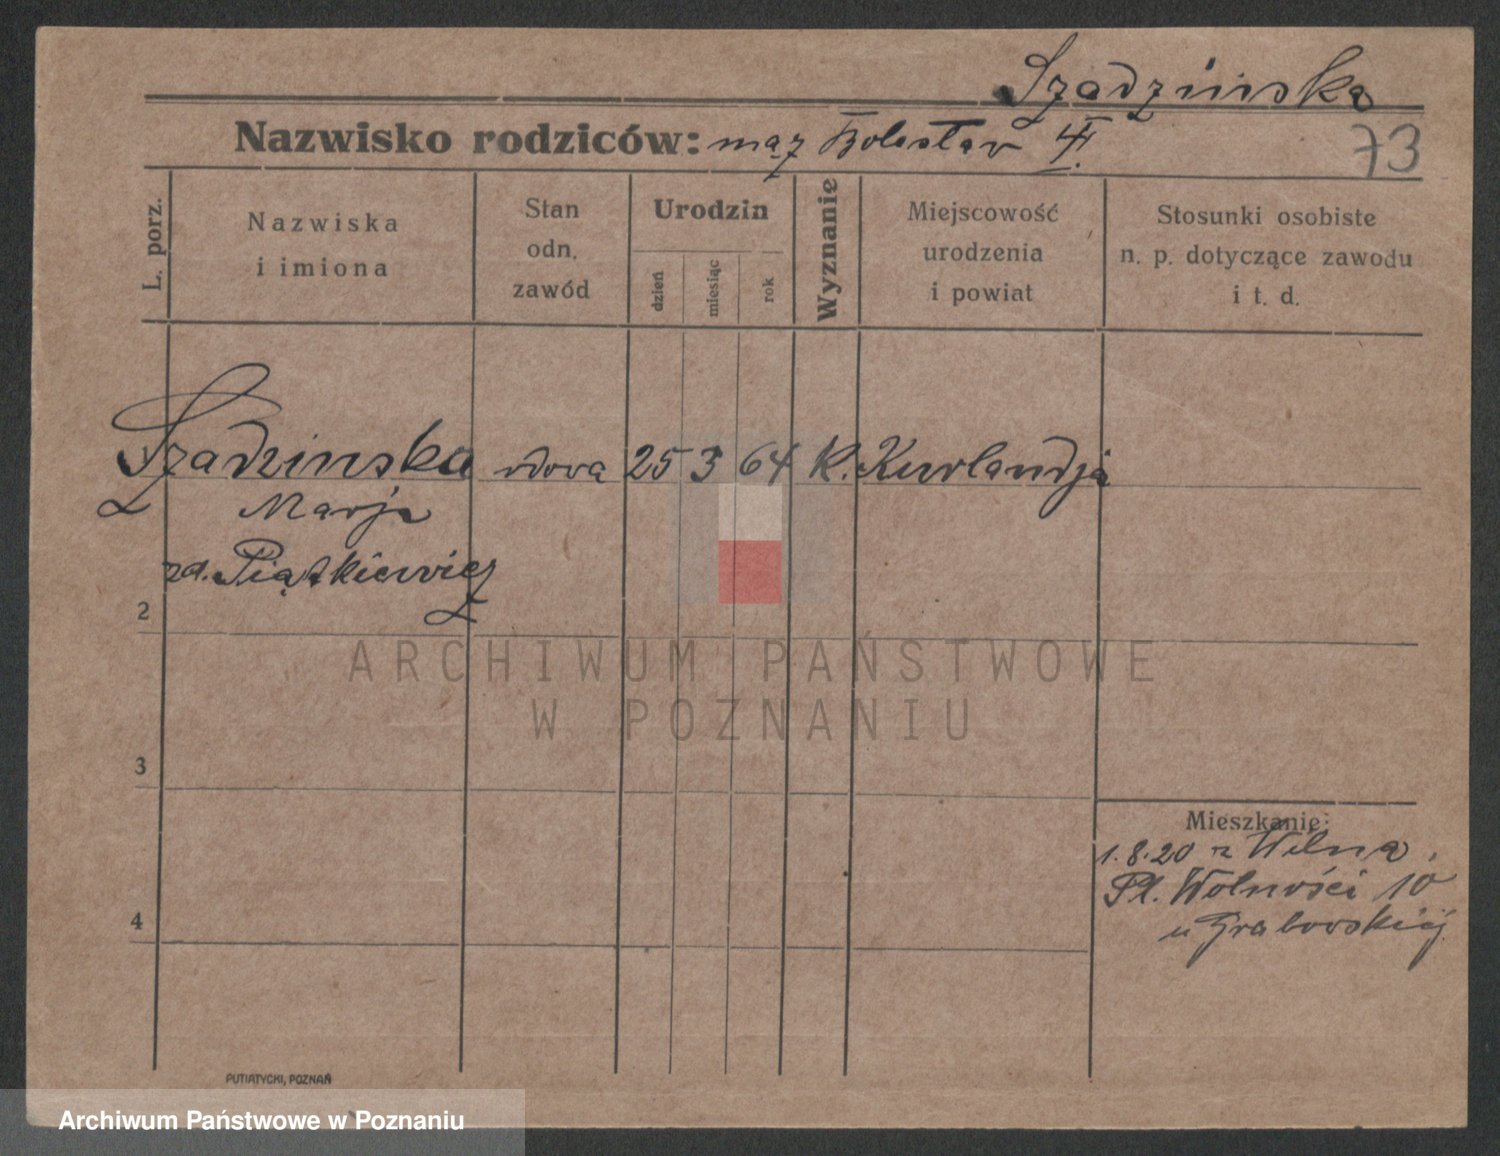 Szadzińska
73
Nazwisko rodziców: mąż Bolesław
L. porz.
Nazwiska
i imiona
Stan
odn.
zawód
Urodzin
dzień
miesiąc
rok
Wyznanie
Miejscowość
urodzenia
i powiat
Stosunki osobiste
n. p. dotyczące zawodu
i t. d.
Szadzinska wdowa 25 3 64 K. Kurlandja
Marja
zd. Piątkiewicz
2
3
4
Mieszkanie:
1.8.20 z Wilna
Pl. Wolności 10
u Grabowskiej
PUTIATYCKI, POZNAŃ
ARCHIWUM PAŃSTWOWE
W POZNANIU
Archiwum Państwowe w Poznaniu